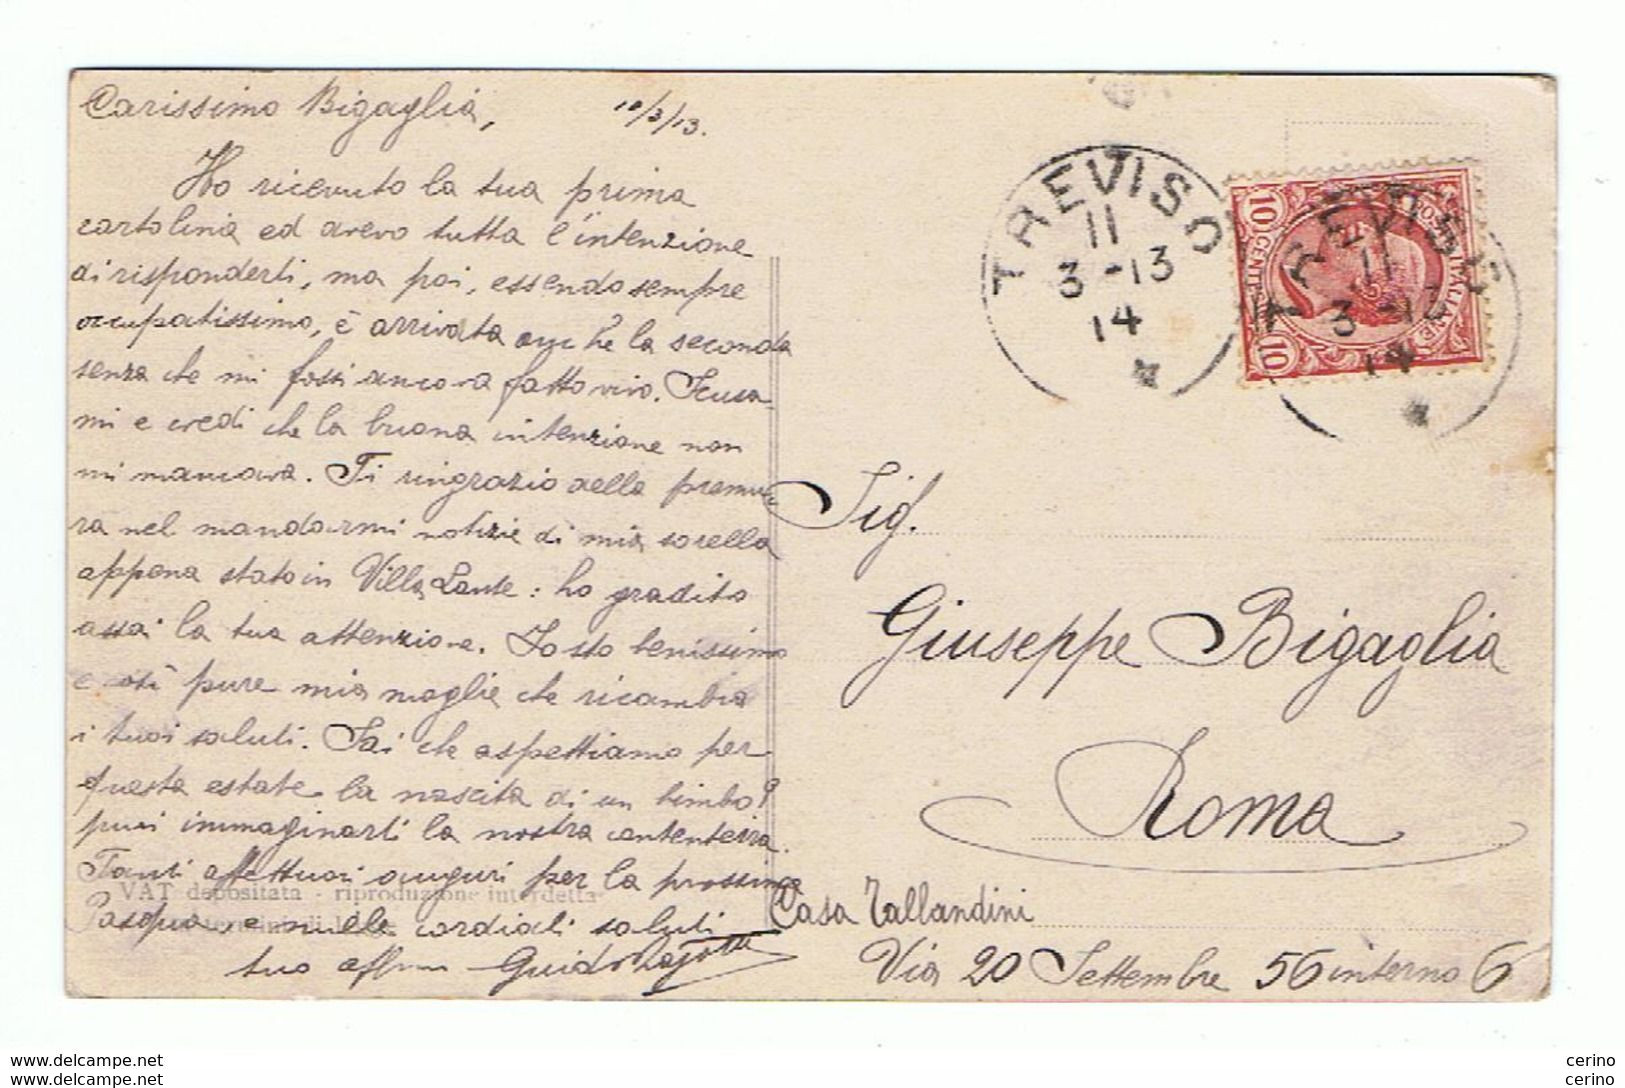 Carissimo Bigaglia,
10/3/13.
Ho ricevuto la tua prima
cartolina ed avevo tutta l'intenzione
di risponderti, ma poi, essendo sempre
occupatissimo, è arrivata anche la seconda
senza che mi fossi ancora fatto vivo. Scusa-
mi e credi che la buona intenzione non
mi mancava. Ti ringrazio della premu-
ra nel mandarmi notizie di mia sorella
appena stato in Villa Lante: ho gradito
assai la tua attenzione. Io sto benissimo
e così pure mia moglie che ricambia
i tuoi saluti. Sai che aspettiamo per
questa estate la nascita di un bimbo?
puoi immaginarti la nostra contentezza.
Tanti affettuosi auguri per la prossima
Pasqua, e mille cordiali saluti
tuo Guido
VAT depositata - riproduzione interdetta
TREVISO
11
3-13
14
TREVISO
11
3-13
14
10 CENT. 10
POSTE ITALIANE
Sig.
Giuseppe Bigaglia
Roma
Casa Tallandini
Via 20 Settembre 56 interno 6
www.delcampe.net
www.delcampe.net
cerino
cerino